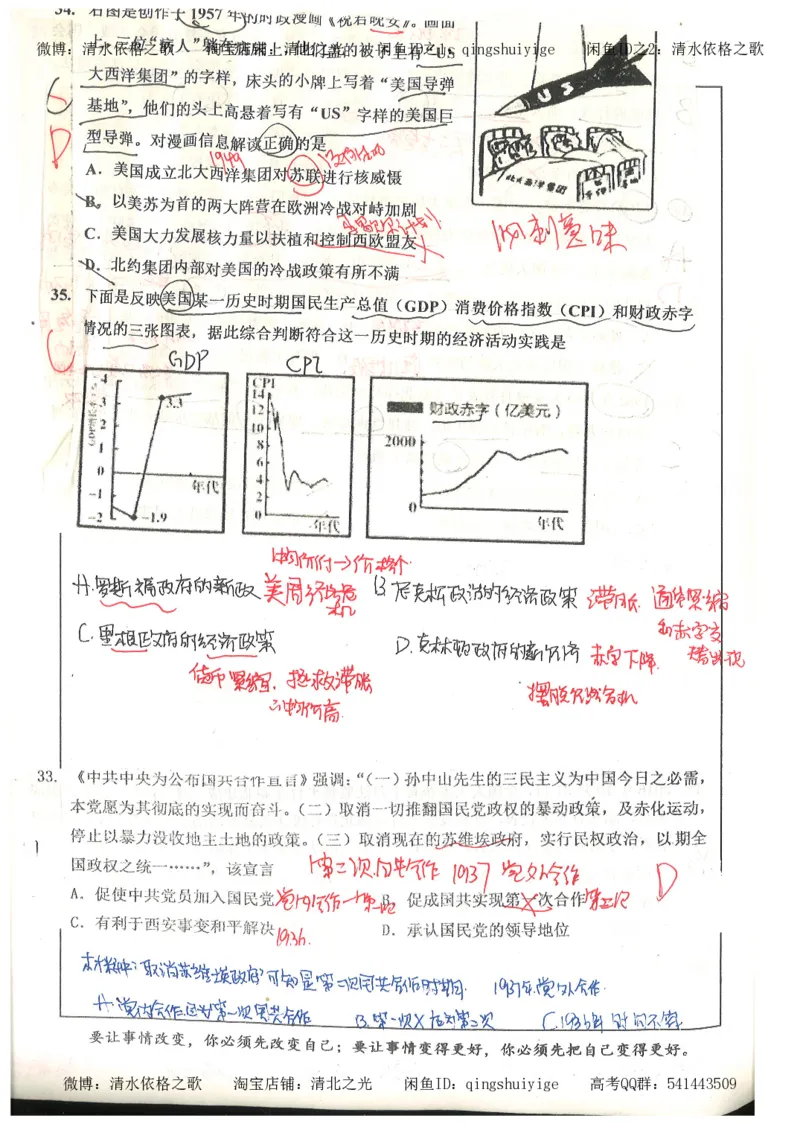 34. 右图是创作于1957年的时政漫画《祝君晚安》。画面
微博：清水依格之歌 淘宝店铺：清北之光 闲鱼ID之1：qingshuiyige 闲鱼ID之2：清水依格之歌
大西洋集团”的字样，床头的小牌上写着“美国导弹
基地”，他们的头上高悬着写有“US”字样的美国巨
型导弹。对漫画信息解读正确的是
1949
A．美国成立北大西洋集团对苏联进行核威慑
B．以美苏为首的两大阵营在欧洲冷战对峙加剧
C．美国大力发展核力量以扶植和控制西欧盟友
D．北约集团内部对美国的冷战政策有所不满
US
北大西洋集团
讽刺意味
D
35. 下面是反映美国某一历史时期国民生产总值（GDP）消费价格指数（CPI）和财政赤字
情况的三张图表，据此综合判断符合这一历史时期的经济活动实践是
C
GDP CPI
4
3
2
1
0
-1
-2
3.3
-1.9
年代
CPI
14
12
10
8
6
4
2
0
年代
财政赤字（亿美元）
2000
0
年代
A.罗斯福政府的新政 美国经济危机
B 尼克松政治的经济政策 滞胀
C.里根政府的经济政策
D.克林顿政府的新经济 赤字下降
货币紧缩，拯救滞胀
摆脱经济危机
33. 《中共中央为公布国共合作宣言》强调：“（一）孙中山先生的三民主义为中国今日之必需，
本党愿为其彻底的实现而奋斗。（二）取消一切推翻国民党政权的暴动政策，及赤化运动，
停止以暴力没收地主土地的政策。（三）取消现在的苏维埃政府，实行民权政治，以期全
国政权之统一……”，该宣言
第二次国共合作 1937 党外合作
D
A．促使中共党员加入国民党 党内合作 B．促成国共实现第一次合作 第二次
C．有利于西安事变和平解决 1936. D．承认国民党的领导地位
材料中：取消苏维埃政府 可知是第二次国共合作时期 1937年党外合作
A.党内合作应为第一次国共合作 B.第一次X应为第二次 C.1936年 时间不符
要让事情改变，你必须先改变自己；要让事情变得更好，你必须先把自己变得更好。
微博：清水依格之歌 淘宝店铺：清北之光 闲鱼ID：qingshuiyige 高考QQ群：541443509